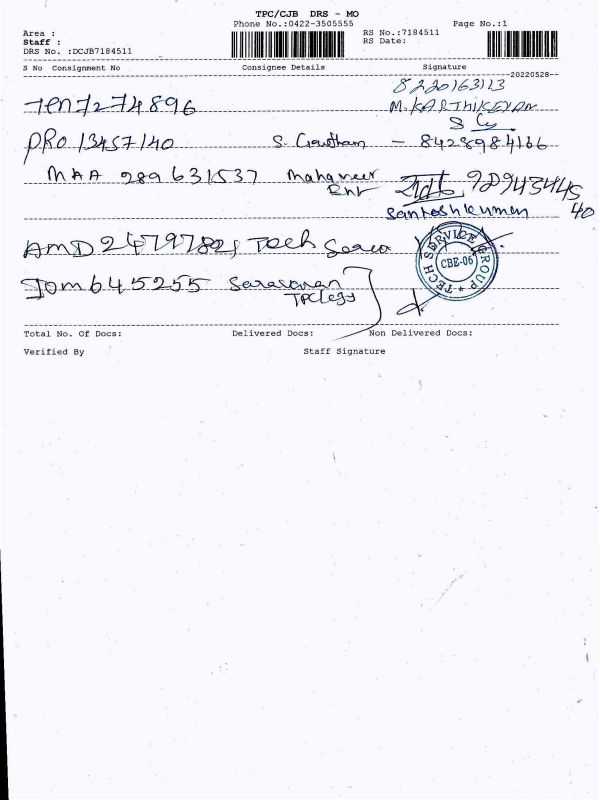 TPC/CJB DRS - MO
Phone No.:0422-3505555
Page No.:1
Area :
Staff :
DRS No. :DCJB7184511
RS No.:7184511
RS Date:
S No Consignment No Consignee Details Signature
20220528
8220163113
Ten7274896 M.KARTHIKEYAN
PRO 13457140 S. Gowtham - 8428984166
MAA 289631537 Mahaveer
Ent
Santosh kumar 40
AMD 247978281 Tech
TECH SERVICE GROUP
CBE-06
Jom645255 Saravanan
Total No. Of Docs: Delivered Docs: Non Delivered Docs:
Verified By Staff Signature